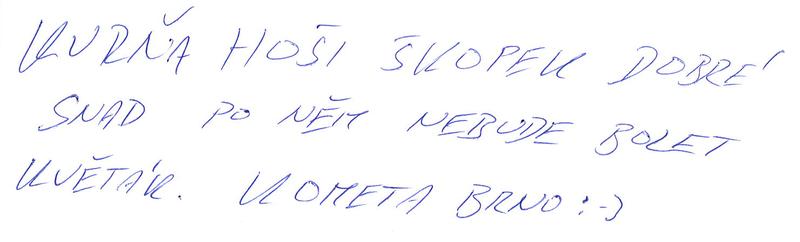 KURŇA HOŠI ŠKOPEK DOBRÉ
SNAD PO NĚM NEBUDE BOLET
KVĚTÁK. KOMETA BRNO :-)